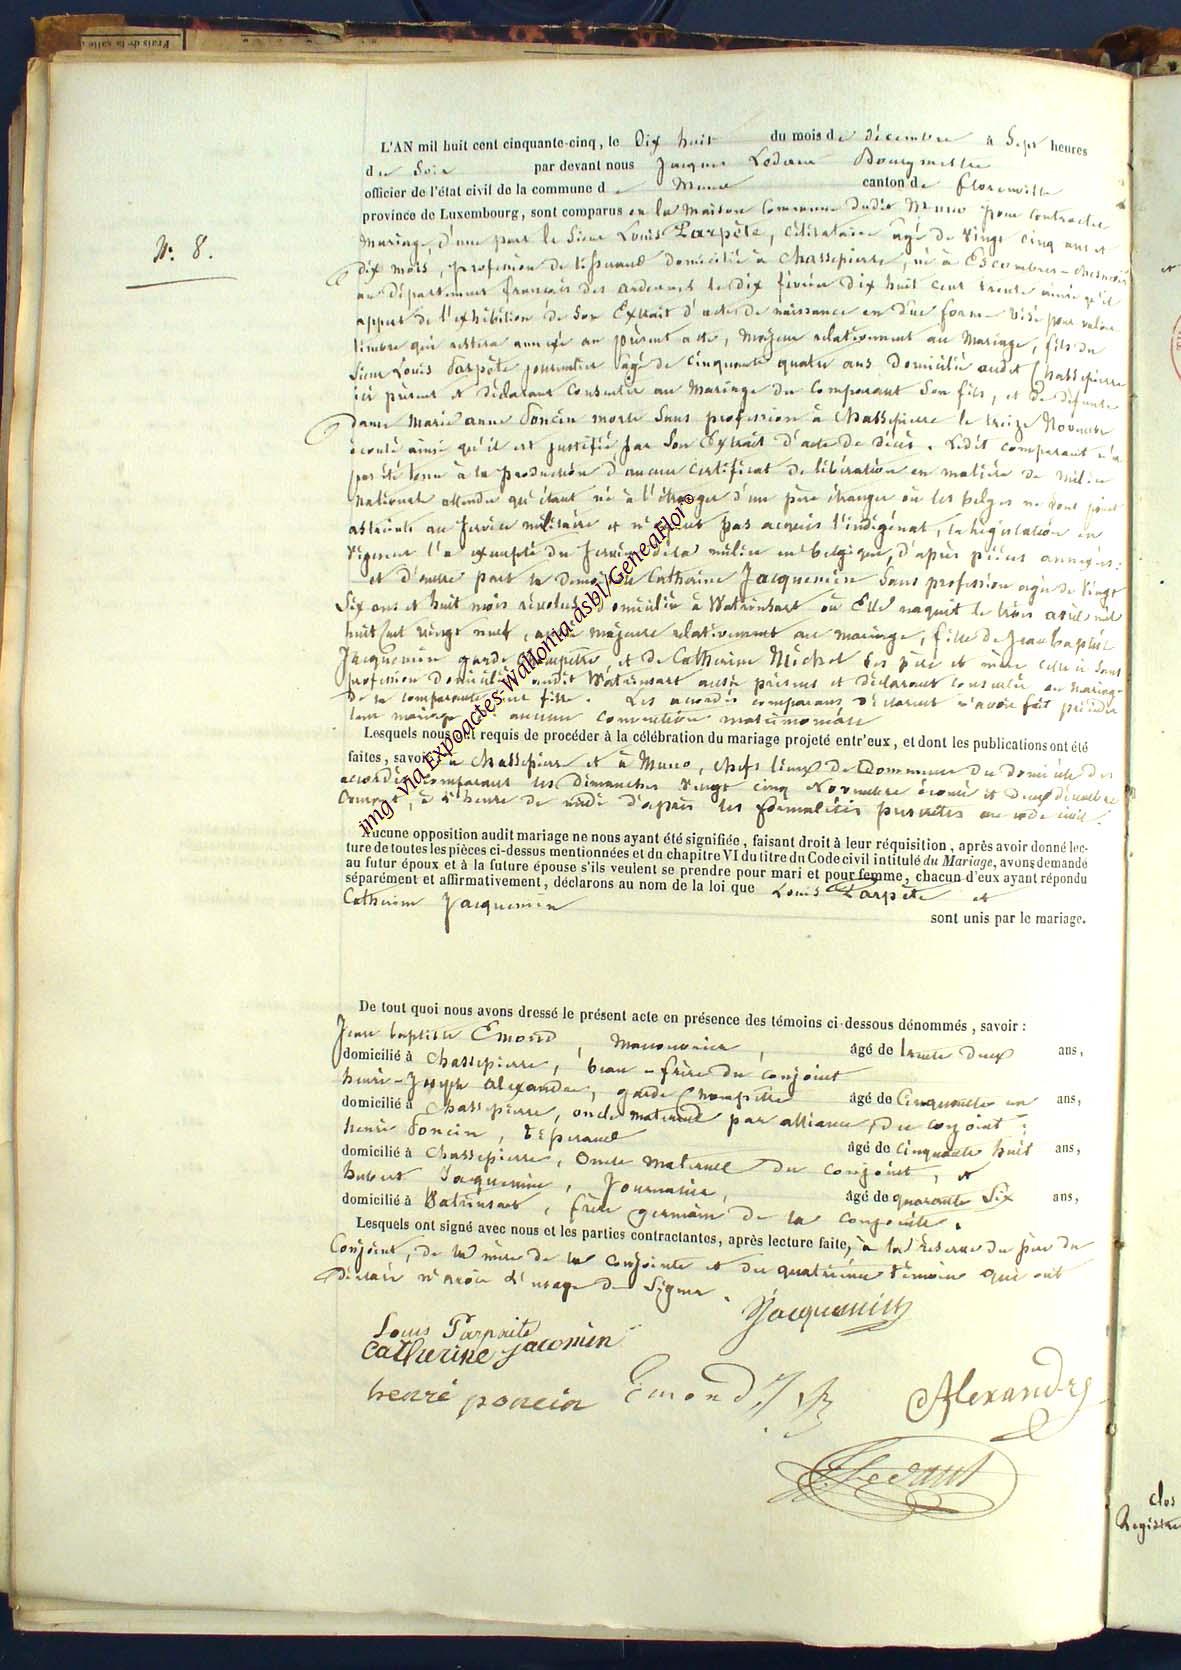 Frais de la salle
N° 8.
L'AN mil huit cent cinquante-cinq, le Dix huit du mois de décembre à Sept heures
du Soir par devant nous Jacques Bourgmestre
officier de l'état civil de la commune de Muno canton de florenville
province de Luxembourg, sont comparus en la Maison Commune dudit Muno pour contracter
Mariage, d'une part le Sieur Louis Parpète, célibataire âgé de Vingt cinq ans et
dix mois, profession de tisserand domicilié à Chassepierre, né à Escombres-
au département français des ardennes le dix février dix huit cent trente ainsi qu'il
appert de l'exhibition de Son Extrait d'acte de naissance en due forme Visé pour valoir
timbre qui restera annexé au présent acte, Majeur relativement au Mariage, fils du
Sieur Louis Parpète journalier âgé de cinquante quatre ans domicilié audit Chassepierre
ici présent et déclarant Consentir au Mariage du Comparant Son fils, et de défunte
Dame Marie anne Poncin morte Sans profession à Chassepierre le treize Novembre
écoulé ainsi qu'il est justifié par Son Extrait d'acte de décès. Ledit comparant n'a
pas été tenu à la production d'aucun Certificat de libération en matière de Milice
Nationale attendu qu'étant né à l'étranger d'un père étranger où les belges ne sont point
astreints au Service militaire et n'ayant pas acquis l'indigénat, la législation en
Vigueur l'a exempté du Service de la milice en belgique, d'après pièces annexées;
et d'autre part la Demoiselle Catherine Jacquemin Sans profession âgée de Vingt
Six ans et huit mois révolus domiciliée à Watrinsart où Elle naquit le trois avril mil
huit Cent vingt neuf, aussi majeure relativement au mariage, fille de Jean baptiste
Jacquemin garde champêtre, et de Catherine Michel Ses père et mère celle ci Sans
profession domiciliés audit Watrinsart aussi présens et déclarant consentir au Mariage
de la comparante leur fille. Les accordés comparans déclarent n'avoir fait précéder
leur mariage d' aucune convention matrimoniale
Lesquels nous ont requis de procéder à la célébration du mariage projeté entr'eux, et dont les publications ont été
faites, savoir: à Chassepierre et à Muno, chefs lieux de Commune du domicile des
accordés comparans les dimanches Vingt cinq Novembre écoulé et Deux décembre
Courant, à l'heure de midi d'après les formalités prescrites au code civil.
Aucune opposition audit mariage ne nous ayant été signifiée, faisant droit à leur réquisition, après avoir donné lec-
ture de toutes les pièces ci-dessus mentionnées et du chapitre VI du titre du Code civil intitulé du Mariage, avons demandé
au futur époux et à la future épouse s'ils veulent se prendre pour mari et pour femme, chacun d'eux ayant répondu
séparément et affirmativement, déclarons au nom de la loi que Louis Parpète et
Catherine Jacquemin
sont unis par le mariage.
De tout quoi nous avons dressé le présent acte en présence des témoins ci-dessous dénommés, savoir:
Jean baptiste Emond, Manouvrier, âgé de trente deux ans,
domicilié à Chassepierre, beau-frère du conjoint
henri-Joseph Alexandre, garde Champêtre âgé de Cinquante un ans,
domicilié à Chassepierre, oncle maternel par alliance, du conjoint;
henri Poncin, tisserand âgé de cinquante huit ans,
domicilié à Chassepierre, Oncle Maternel du conjoint, et
hubert Jacquemin, Journalier, âgé de quarante Six ans,
domicilié à Watrinsart, frère germain de la conjointe.
Lesquels ont signé avec nous et les parties contractantes, après lecture faite, à la réserve du père du
Conjoint, de la mère de la conjointe et du quatrième témoin qui ont
déclaré n'avoir d'usage de Signer.
Jacquemin
Louis Parpaite
Catherine jacomin
henri poncin Emond J B Alexandre
img via Expoactes-Wallonia-asbl/GeneaFlor©
clos
Registre